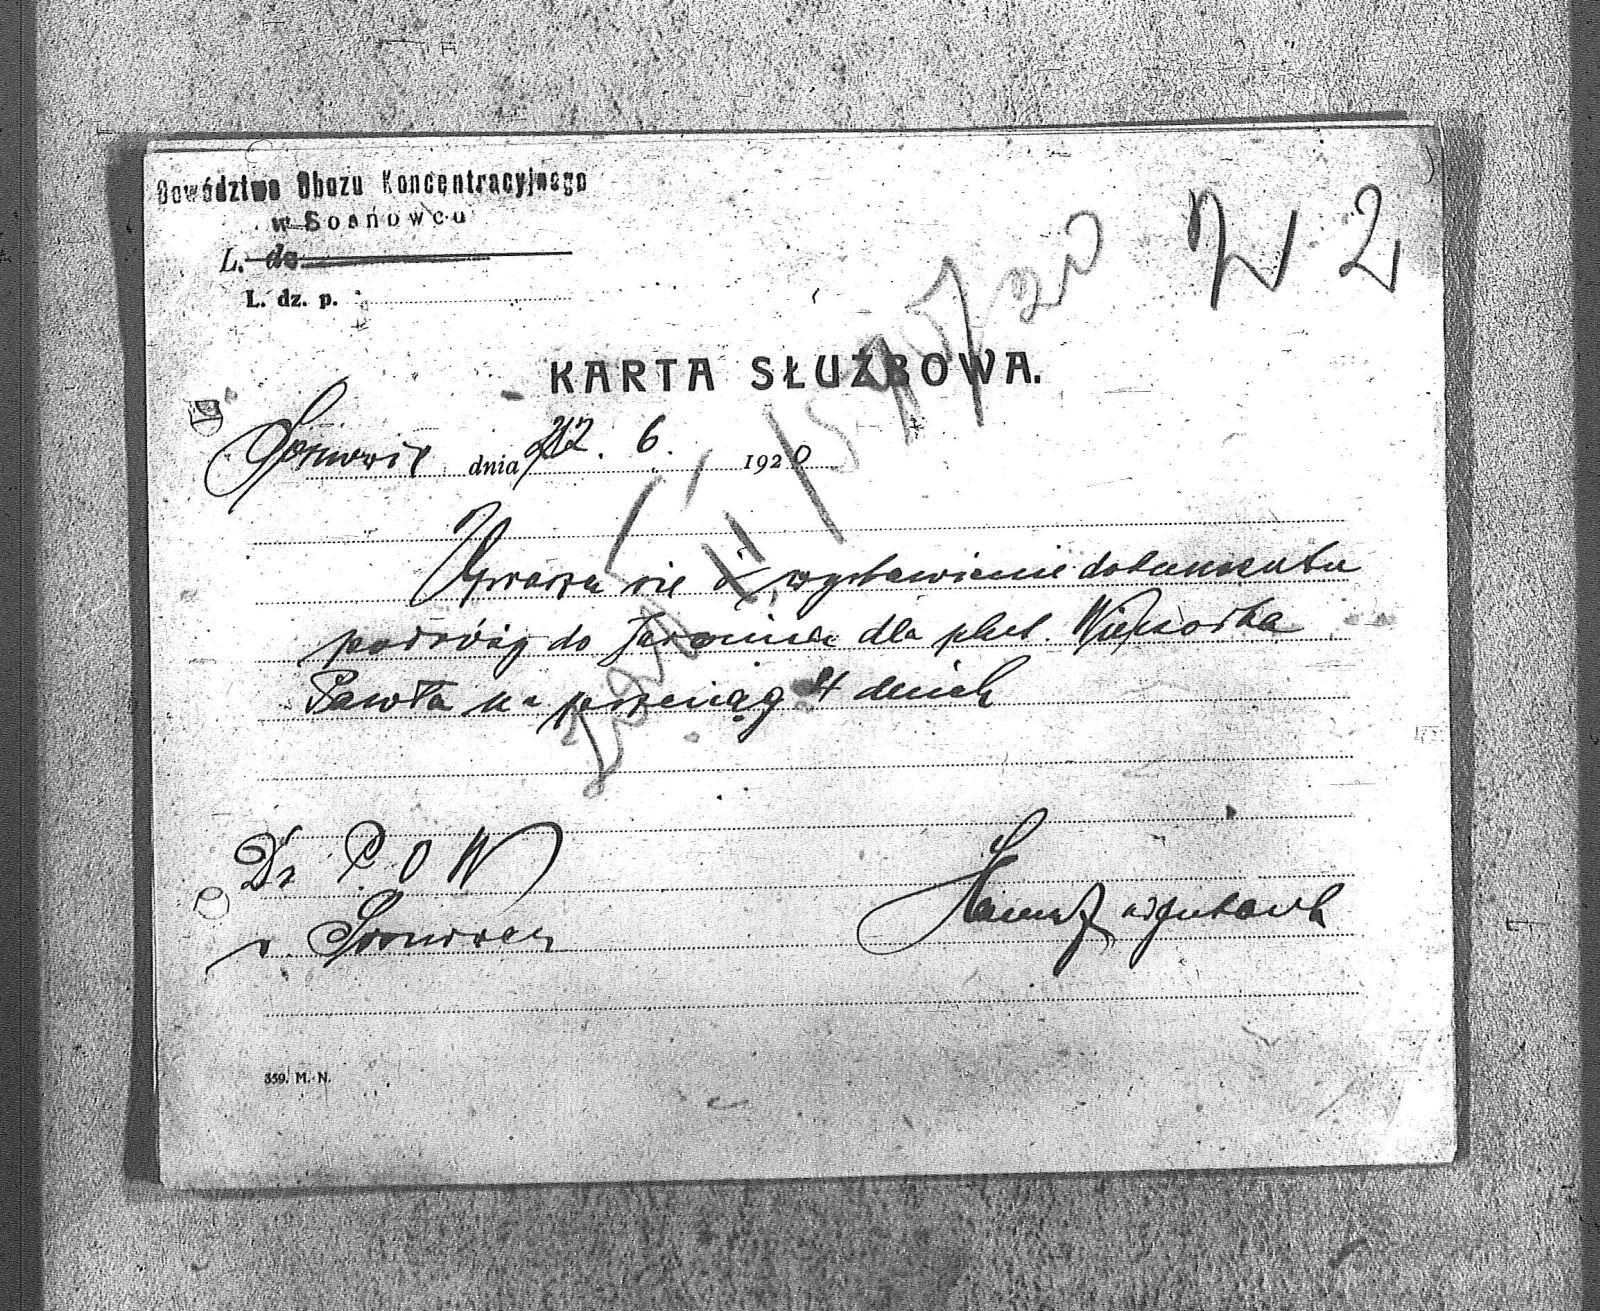 Dowództwo Obozu Koncentracyjnego
w Sosnowcu
L. do
L. dz. p.
22
KARTA SŁUŻBOWA.
Sosnowic dnia 22. 6. 1920
Uprasza się o wystawienie dokumentu
podróży do dla plut. Wieczorka
Pawła na przeciąg 4 dnich
D. P O W
w Sosnowcu
adjutant
359. M. N.